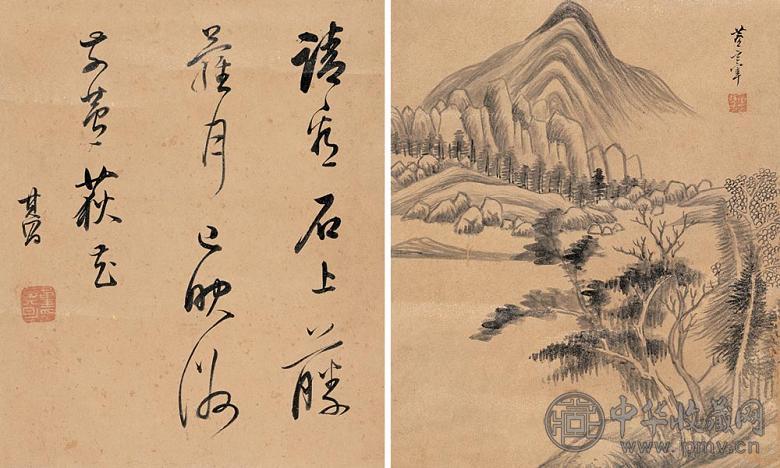 請看石上藤
蘿月已映洲
前蘆荻花
其昌
董玄宰
中华收藏网
www.jpmv.cn